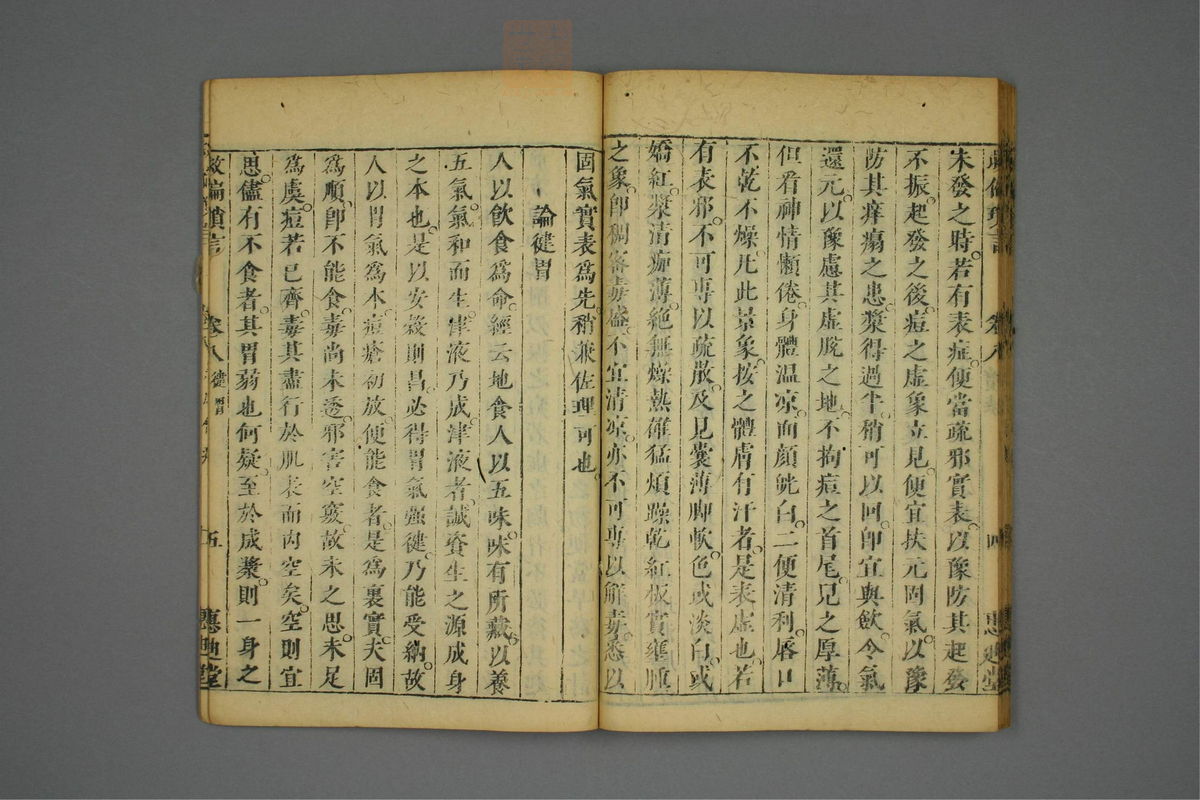 未發之時若有表症便當疏邪實表以豫防其起發
不振起發之後痘之虛象立見便宜扶元固氣以豫
防其痒瘍之患漿得過半稍可以回即宜與飲令氣
還元以豫慮其虛脫之地不拘痘之首尾兄之厚薄
但看神情懶倦身體温凉面顏㿠白二便清利唇口
不乾不燥凡此景象按之體膚有汗者是表虛也若
有表邪不可専以疏散及見囊薄脚軟色或淡白或
嬌紅漿清痂薄絶無燥熱雄猛煩躁乾紅板實壅腫
之象即稠宻毒盛不宜清凉亦不可専以解毒悉以
固氣實表爲先稍兼佐理可也
論健胃
人以飲食爲命經云地食人以五味味有所藏以養
五氣氣和而生津液乃成津液者誠資生之源成身
之本也是以安穀則昌必得胃氣强健乃能受納故
人以胃氣爲本痘瘡初放便能食者是爲裏實夫固
爲順即不能食毒尚未透邪害空竅故永之思未足
爲虞痘若已齊毒其盡行於肌表而内空矣空則宜
思儘有不食者其胃弱也何疑至於成漿則一身之
救偏瑣言 卷八 健胃 五 惠迪堂